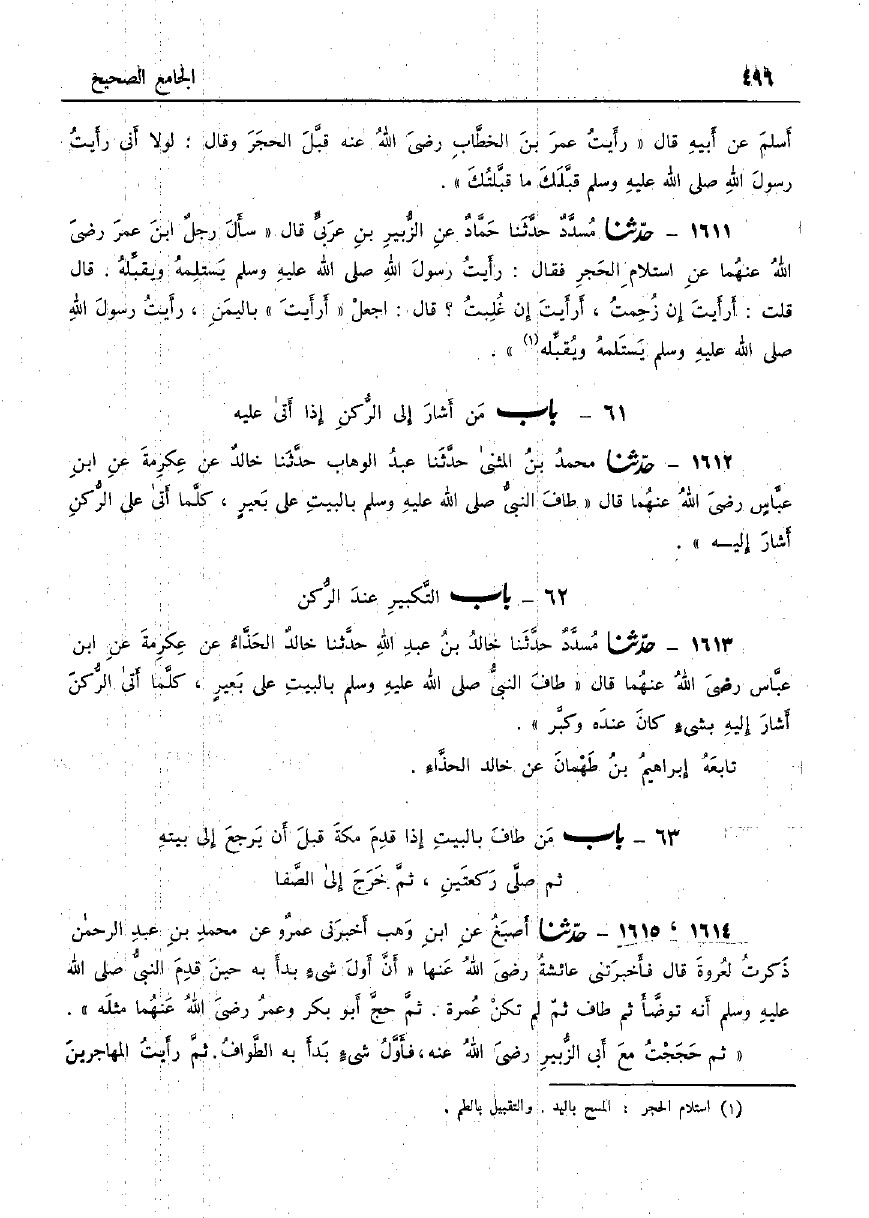 ٤٩٦
الجامع الصحيح
أَسلمَ عن أَبيهِ قال « رأَيتُ عمرَ بنَ الخطَّابِ رضىَ اللهُ عنه قبَّلَ الحجَرَ وقال : لولا أَنى رأَيتُ
رسولَ اللهِ صلى الله عليهِ وسلم قبَّلَكَ ما قبَّلتُكَ » .
١٦١١ – حدّثنا مُسدَّدٌ حدَّثَنا حَمَّادٌ عنِ الزُّبيرِ بنِ عرَبىٍّ قال « سأَلَ رجلٌ ابنَ عمرَ رضىَ
اللهُ عنهُما عنِ استلامِ الحَجرِ فقال : رأَيتُ رسولَ اللهِ صلى الله عليهِ وسلم يَستلِمهُ ويقبِّلهُ . قال
قلت : أَرأَيتَ إن زُحِمتُ ، أَرأَيتَ إن غُلِبتُ ؟ قال : اجعلْ « أَرأَيتَ » باليمَنِ ، رأَيتُ رسولَ اللهِ
صلى الله عليهِ وسلم يَستَلمهُ ويُقبِّله(١) » .
٦١ – باب مَن أَشارَ إلى الرُّكنِ إذا أَتىٰ عليه
١٦١٢ – حدّثنا محمدُ بنُ المثنىٰ حدَّثَنا عبدُ الوهاب حدَّثَنا خالدٌ عن عِكرِمةَ عنِ ابنِ
عبَّاسٍ رضىَ اللهُ عنهُما قال « طافَ النبىُّ صلى الله عليهِ وسلم بالبيتِ على بَعيرٍ ، كلَّما أَتىٰ على الرُّكنِ
أَشارَ إليـه » .
٦٢ – باب التَّكبيرِ عندَ الرُّكن
١٦١٣ – حدّثنا مُسدَّدٌ حدَّثَنا خالدُ بنُ عبدِ اللهِ حدَّثنا خالدٌ الحَذَّاءُ عن عِكرِمةَ عنِ ابن
عبَّاس رضىَ اللهُ عنهُما قال « طافَ النبىُّ صلى الله عليهِ وسلم بالبيتِ على بَعيرٍ ، كلَّما أَتىٰ الرُّكنَ
أَشارَ إليهِ بشىءٍ كانَ عندَه وكبَّر » .
تابعَهُ إبراهيمُ بنُ طَهْمانَ عن خالد الحذَّاءِ .
٦٣ – باب مَن طافَ بالبيتِ إذا قدِمَ مكةَ قبلَ أَن يَرجعَ إلى بيتهِ
ثم صلَّى رَكعتَينِ ، ثمَّ خَرَجَ إلىٰ الصَّفا
١٦١٤ ، ١٦١٥ – حدّثنا أَصبَغُ عنِ ابنِ وَهب أَخبرَنى عمرٌو عن محمدِ بنِ عبدِ الرحمٰن
ذَكرتُ لعُروةَ قال فأَخبرَتنى عائشةُ رضىَ اللهُ عَنها « أَنَّ أَولَ شىءٍ بدأَ به حينَ قدِمَ النبىُّ صلى الله
عليهِ وسلم أَنه توضَّأَ ثم طاف ثمّ لم تكنْ عُمرة . ثمَّ حجَّ أَبو بكر وعمرُ رضىَ اللهُ عَنهُما مثلَه » .
« ثم حَجَجْتُ معَ أَبى الزُّبيرِ رضىَ اللهُ عنه، فأَوَّلُ شىءٍ بَدأَ به الطَّوافُ. ثمَّ رأَيتُ المهاجرينَ
(١) استلام الحجر : المسح باليد . والتقبيل بالفم .